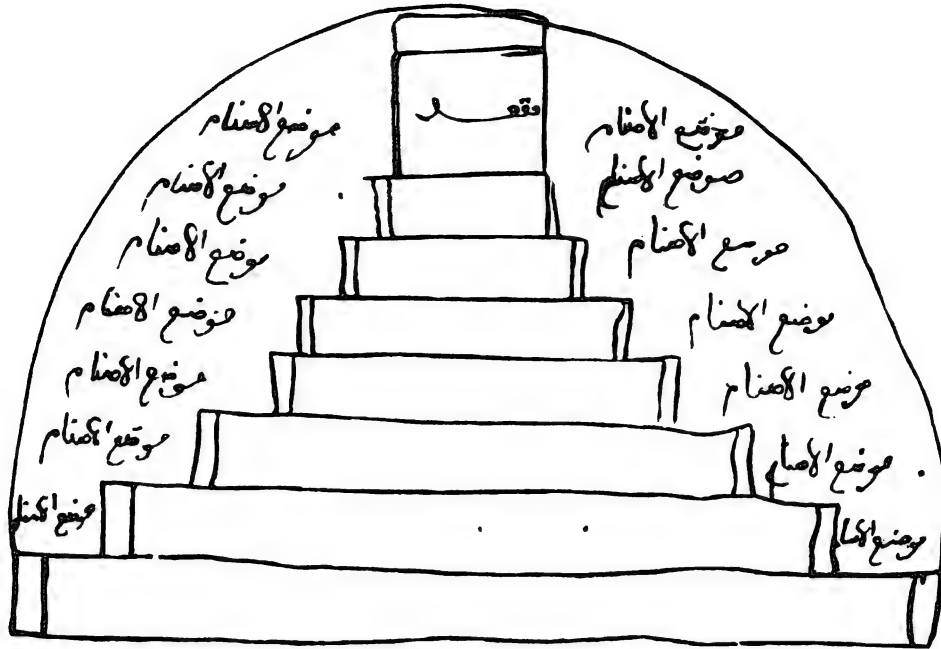 مقعد
موضع الاصنام
موضع الاصنام
موضع الاصنام
موضع الاصنام
موضع الاصنام
موضع الاصنام
موضع الاصنام
موضع الاصنام
موضع الاصنام
موضع الاصنام
موضع الاصنام
موضع الاصنام
موضع الاصنا
موضع الاصنا